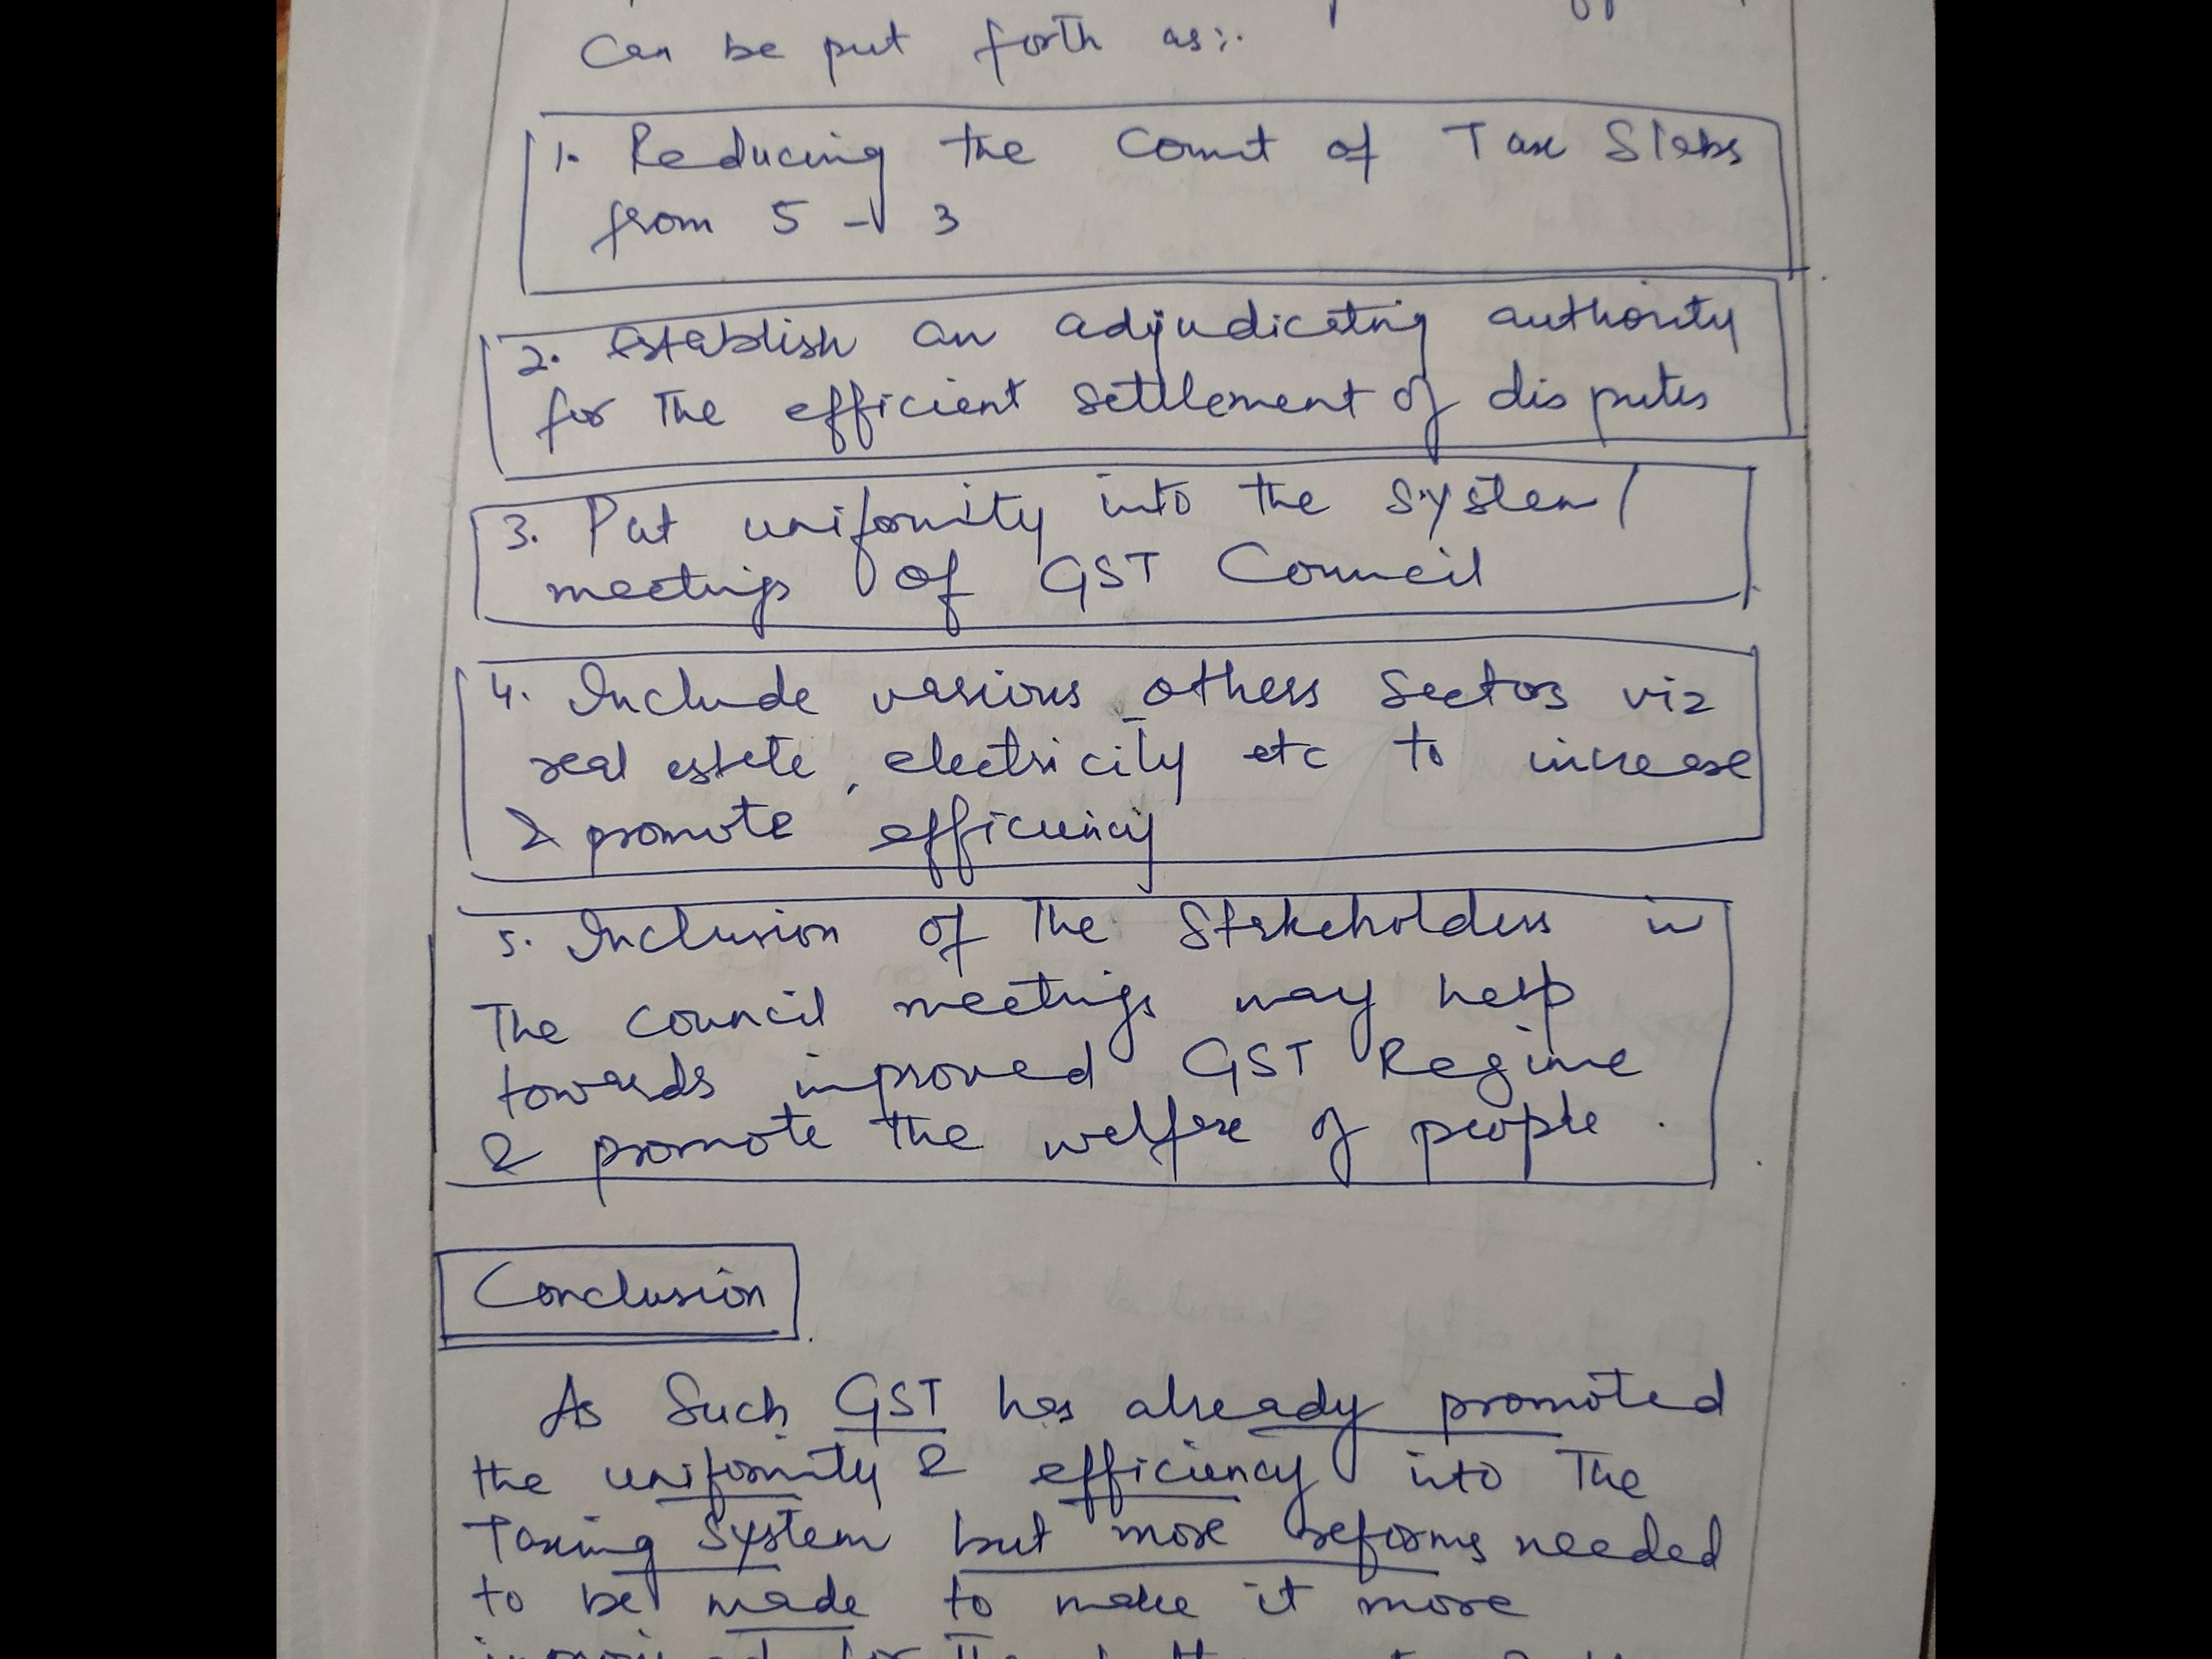 can be put forth as:-
1. Reducing the count of Tax Slabs
from 5 → 3
2. Establish an adjudicating authority
for the efficient settlement of disputes
3. Put uniformity into the system/
meetings of GST Council
4. Include various others sectors viz
real estate, electricity etc to increase
& promote efficiency
5. Inclusion of the Stakeholders in
The council meetings may help
towards improved GST Regime
& promote the welfare of people.
Conclusion
As Such GST has already promoted
the uniformity & efficiency into The
Taxing System but more reforms needed
to be made to make it more